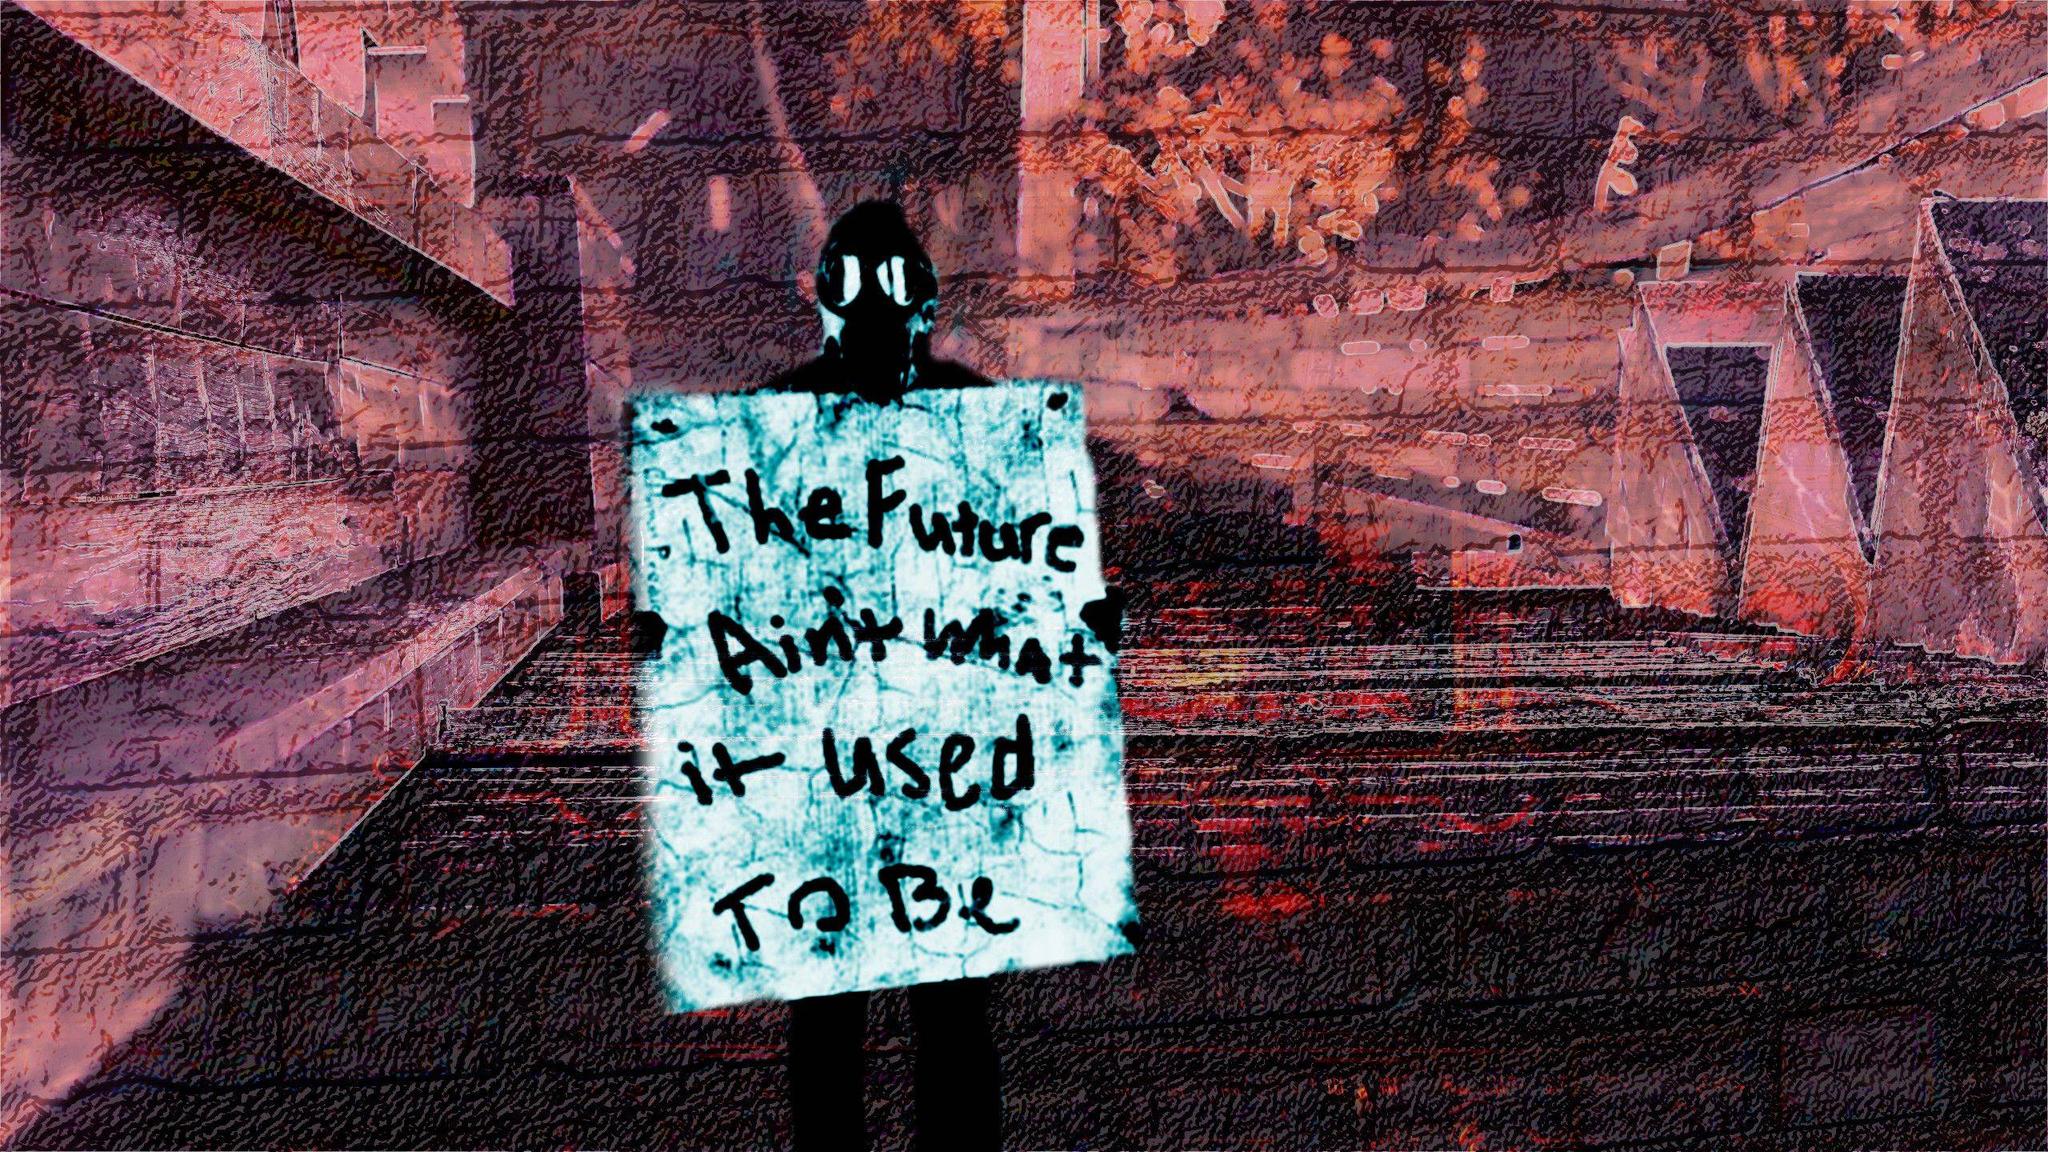 The Future
Ain't what
it used
To Be